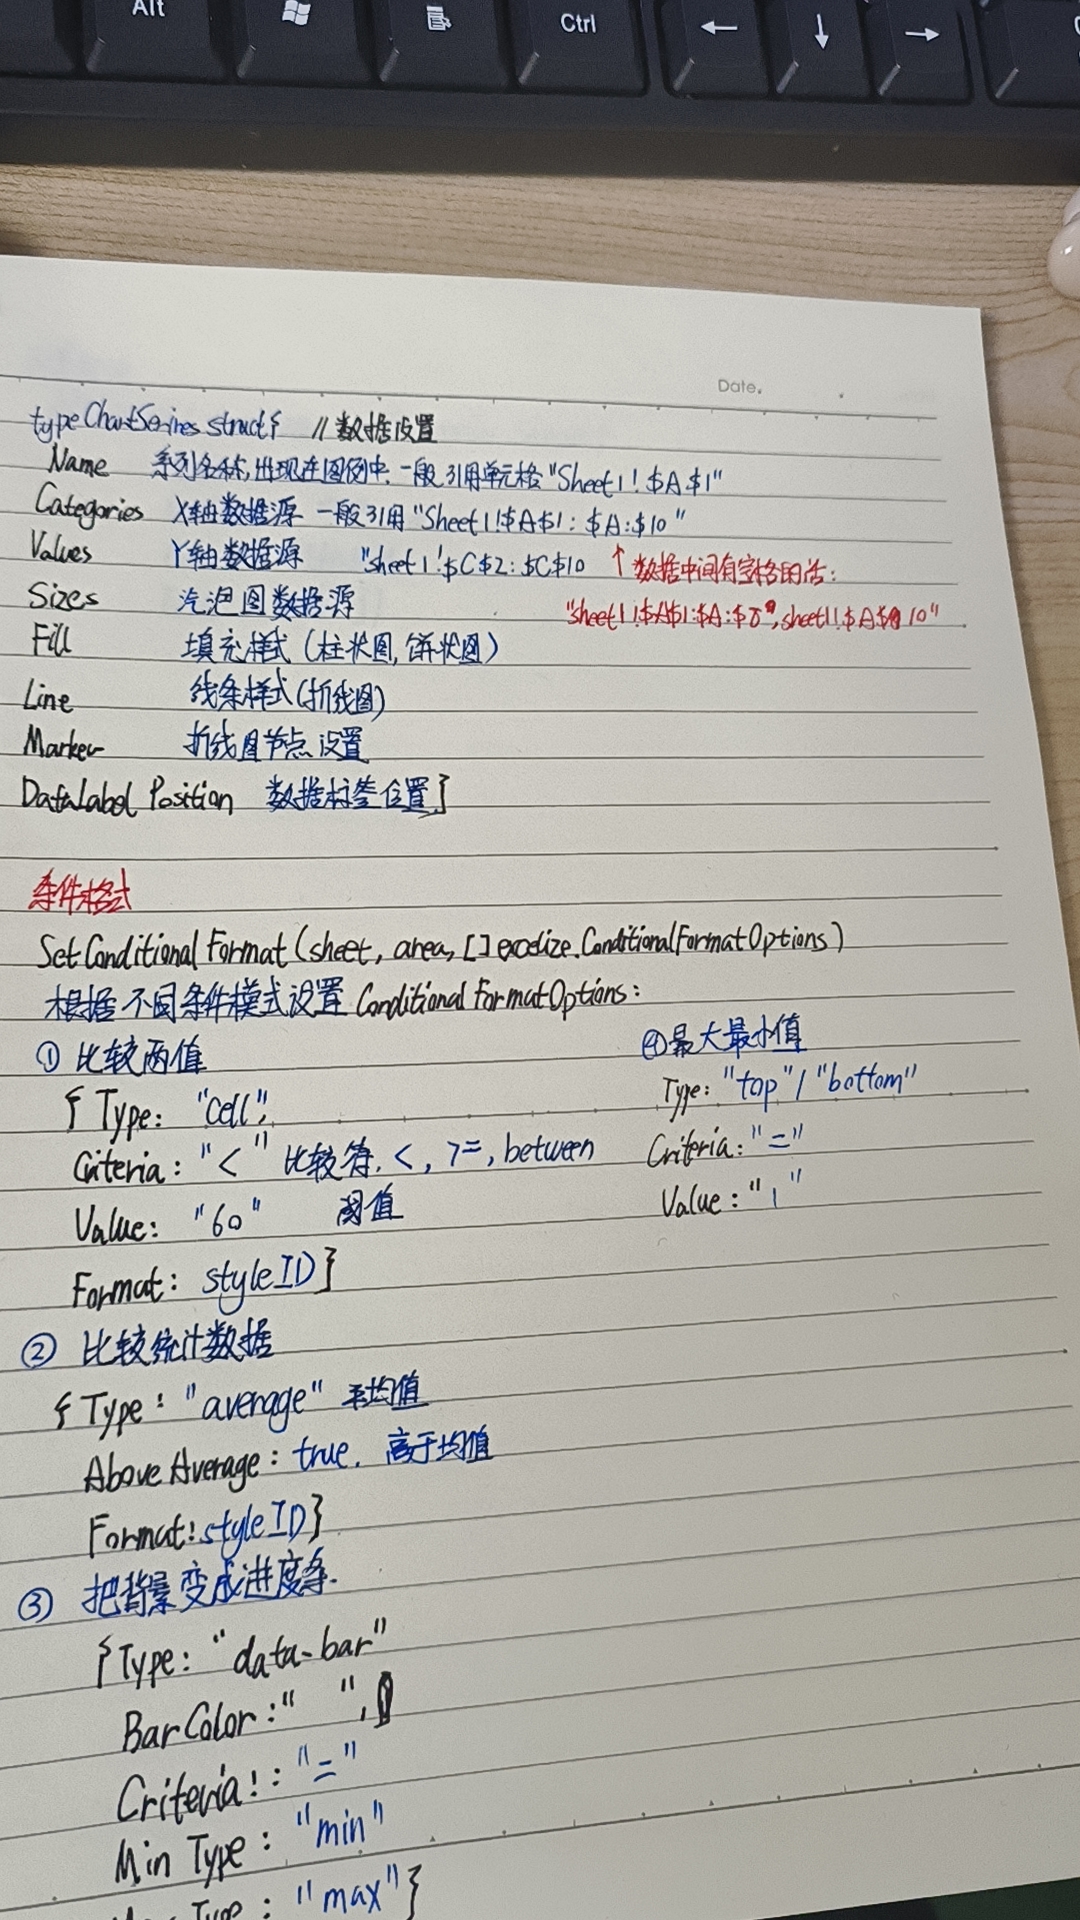 Alt
Ctrl
Date.
type ChartSerires struct{ //数据设置
Name 系列名称,出现在图例中.一般引用单元格"Sheet1!$A$1"
Categories X轴数据源 一般引用"Sheet1!$A$1:$A:$10"
Values Y轴数据源 "sheet1!$C$2:$C$10 ↑数据中间有空格的话:
Sizes 汽泡图数据源 "sheet1!$A$1:$A:$8",sheet1!$A$10"
Fill 填充样式(柱状图,饼状图)
Line 线条样式(折线图)
Marker 折线图节点设置
DataLabel Position 数据标签位置}
条件格式
SetConditional Format(sheet, area, []excelize.ConditionalFormatOptions)
根据不同条件模式设置 Conditional FormatOptions:
① 比较两值
{ Type: "cell",
Criteria: "<" 比较符. <, >=, between
Value: "60" 阈值
Format: styleID}
④最大最小值
Type: "top"/"bottom"
Criteria: "="
Value: "1"
② 比较统计数据
{ Type: "average" 平均值
Above Average: true. 高于均值
Format: styleID}
③ 把背景变成进度条.
{Type: "data-bar"
BarColor: " ",
Criteria!: "="
Min Type: "min"
Type: "max"}